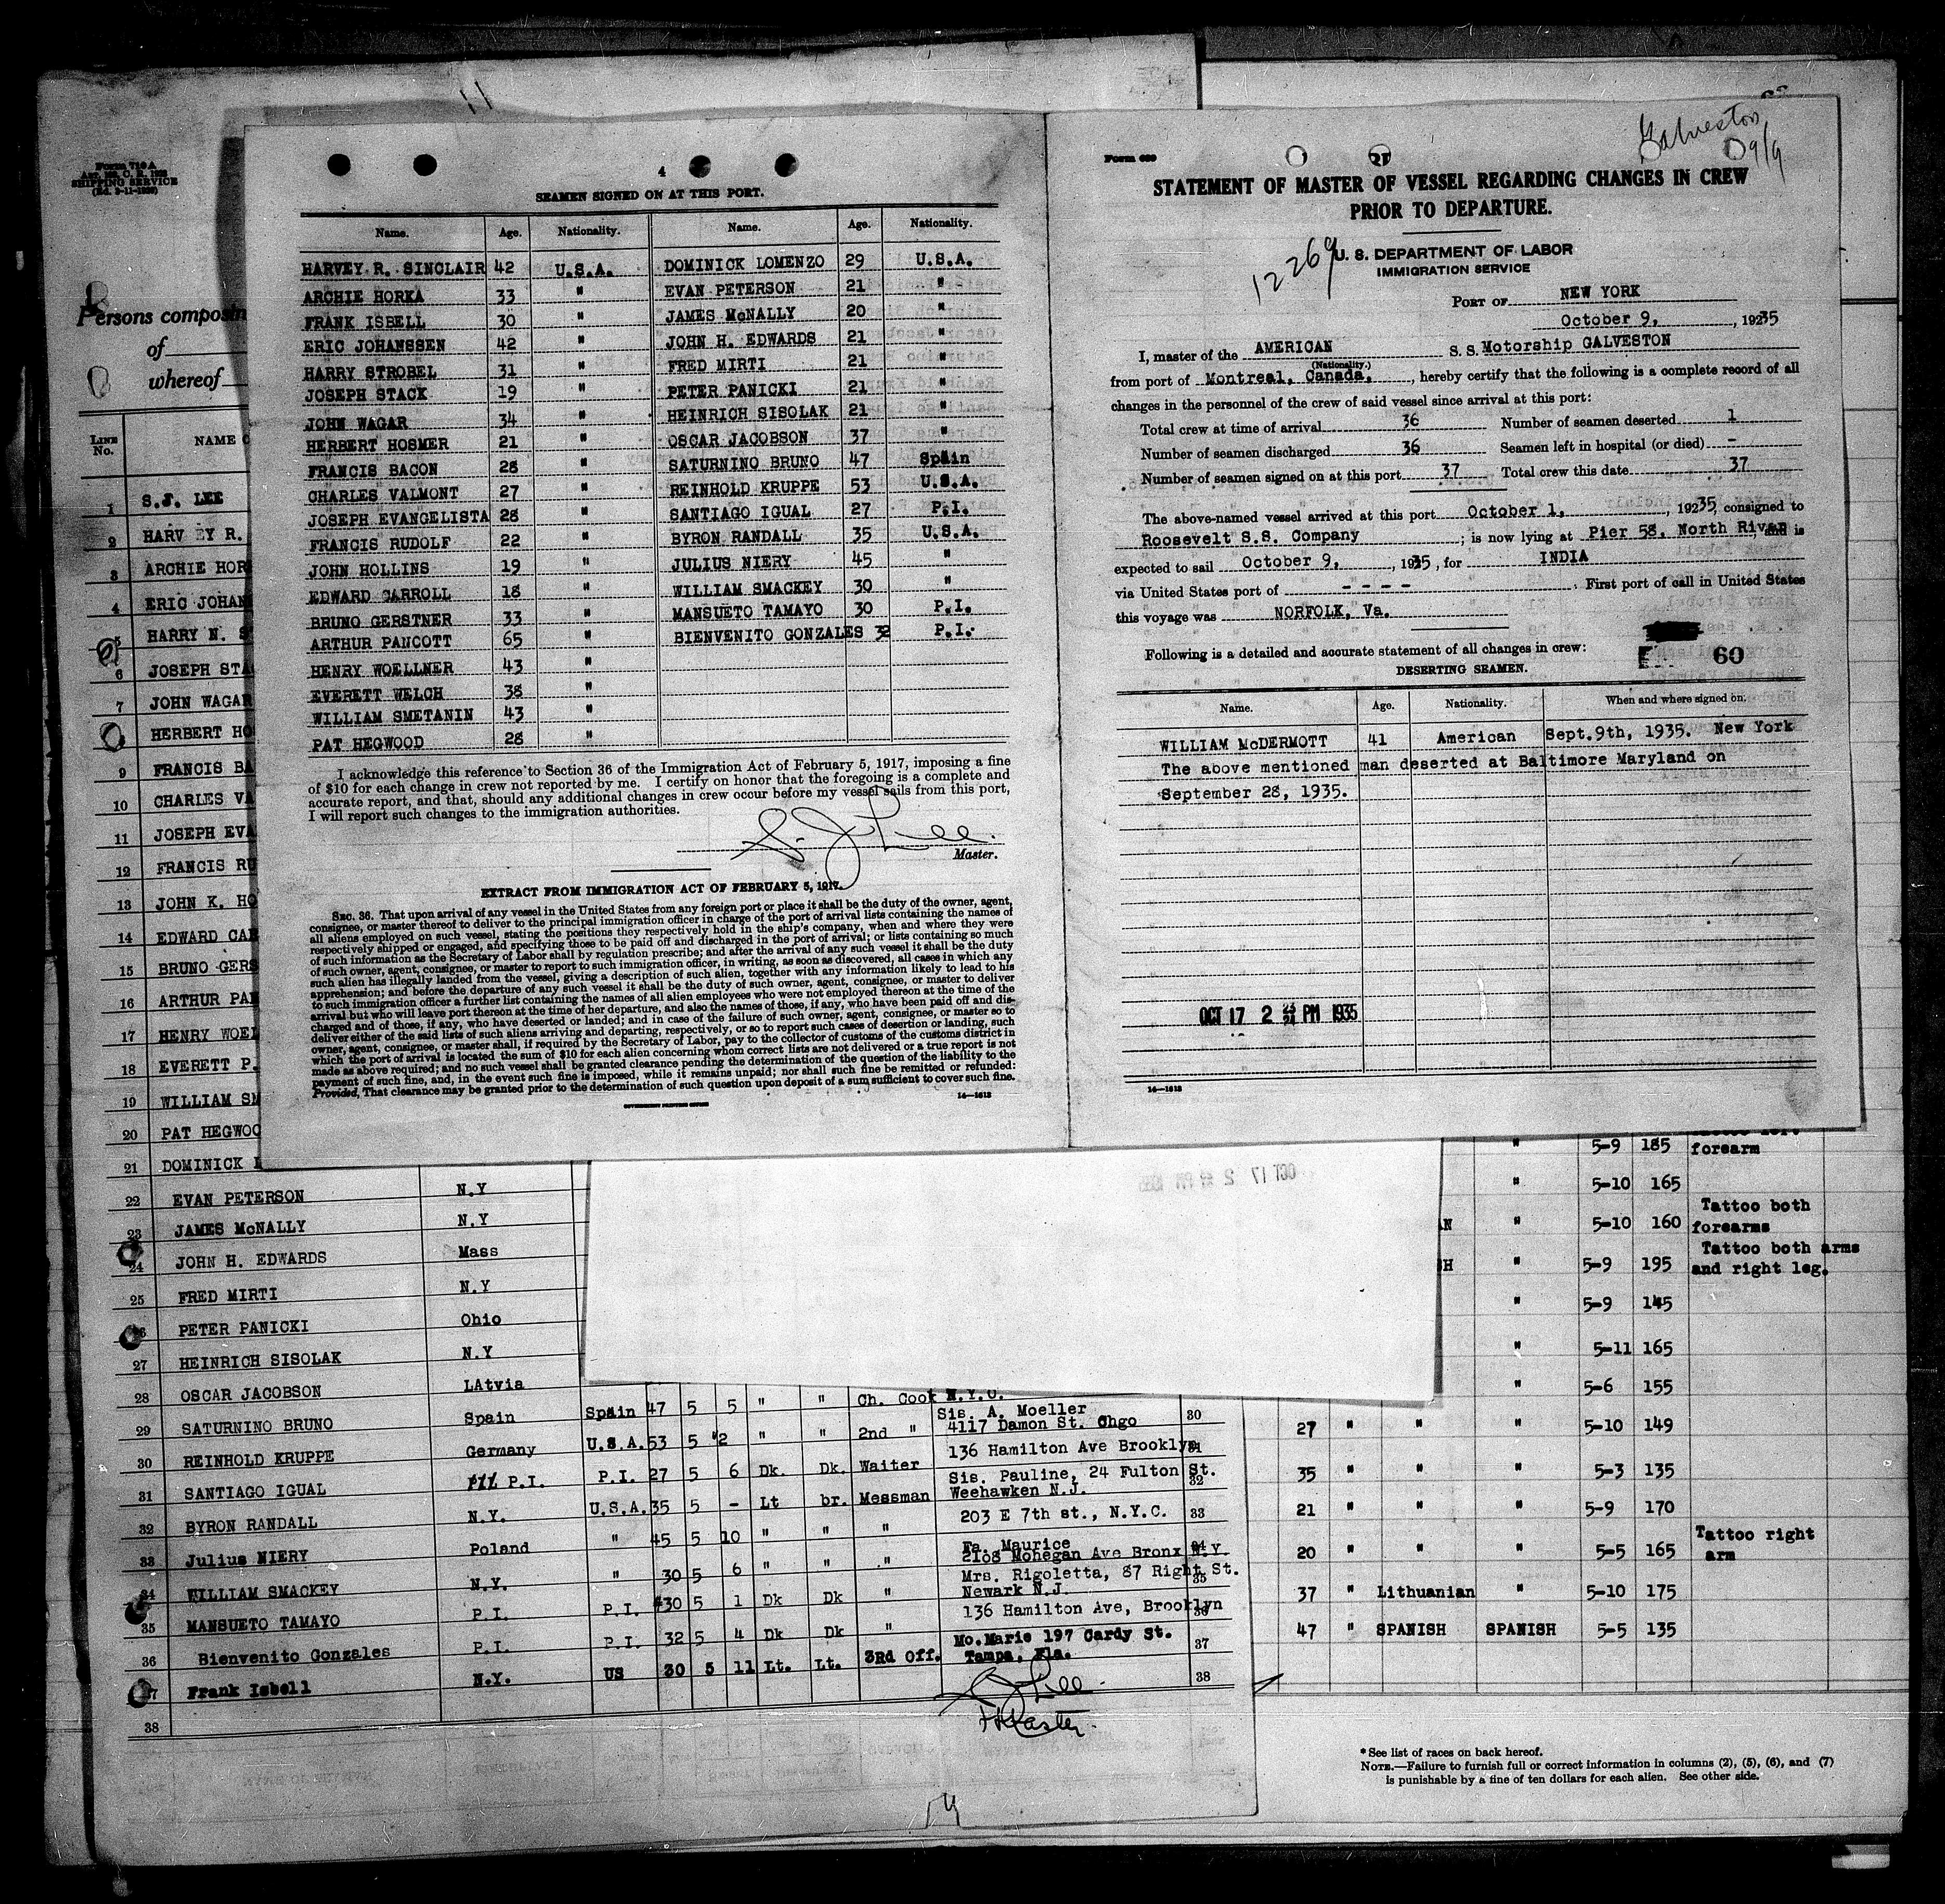 Galveston
9/9
Form 719 A
SHIPPING SERVICE
Persons composin
of
whereof
LINE No.
NAME O
1 S.J. LEE
2 HARV EY R.
3 ARCHIE HOR
4 ERIC JOHAN
5 HARRY N. S
6 JOSEPH STA
7 JOHN WAGAR
HERBERT HO
9 FRANCIS BA
10 CHARLES VA
11 JOSEPH EVA
12 FRANCIS RU
13 JOHN K. HO
14 EDWARD CAR
15 BRUNO GERS
16 ARTHUR PAN
17 HENRY WOEL
18 EVERETT P.
19 WILLIAM SM
20 PAT HEGWOO
21 DOMINICK L
4
SEAMEN SIGNED ON AT THIS PORT.
Name. Age. Nationality. Name. Age. Nationality.
HARVEY R. SINCLAIR 42 U.S.A. DOMINICK LOMENZO 29 U.S.A.
ARCHIE HORKA 33 " EVAN PETERSON 21 "
FRANK ISBELL 30 " JAMES McNALLY 20 "
ERIC JOHANSSEN 42 " JOHN H. EDWARDS 21 "
HARRY STROBEL 31 " FRED MIRTI 21 "
JOSEPH STACK 19 " PETER PANICKI 21 "
JOHN WAGAR 34 " HEINRICH SISOLAK 21 "
HERBERT HOSMER 21 " OSCAR JACOBSON 37 "
FRANCIS BACON 28 " SATURNINO BRUNO 47 Spain
CHARLES VALMONT 27 " REINHOLD KRUPPE 53 U.S.A.
JOSEPH EVANGELISTA 28 " SANTIAGO IGUAL 27 P.I.
FRANCIS RUDOLF 22 " BYRON RANDALL 35 U.S.A.
JOHN HOLLINS 19 " JULIUS NIERY 45 "
EDWARD CARROLL 18 " WILLIAM SMACKEY 30 "
BRUNO GERSTNER 33 " MANSUETO TAMAYO 30 P.I.
ARTHUR PANCOTT 65 " BIENVENITO GONZALES 32 P.I.
HENRY WOELLNER 43 "
EVERETT WELCH 38 "
WILLIAM SMETANIN 43 "
PAT HEGWOOD 28 "
I acknowledge this reference to Section 36 of the Immigration Act of February 5, 1917, imposing a fine
of $10 for each change in crew not reported by me. I certify on honor that the foregoing is a complete and
accurate report, and that, should any additional changes in crew occur before my vessel sails from this port,
I will report such changes to the immigration authorities.
S. J. Lee
Master.
EXTRACT FROM IMMIGRATION ACT OF FEBRUARY 5, 1917.
SEC. 36. That upon arrival of any vessel in the United States from any foreign port or place it shall be the duty of the owner, agent,
consignee, or master thereof to deliver to the principal immigration officer in charge of the port of arrival lists containing the names of
all aliens employed on such vessel, stating the positions they respectively hold in the ship's company, when and where they were
respectively shipped or engaged, and specifying those to be paid off and discharged in the port of arrival; or lists containing so much
of such information as the Secretary of Labor shall by regulation prescribe; and after the arrival of any such vessel it shall be the duty
of such owner, agent, consignee, or master to report to such immigration officer, in writing, as soon as discovered, all cases in which any
such alien has illegally landed from the vessel, giving a description of such alien, together with any information likely to lead to his
apprehension; and before the departure of any such vessel it shall be the duty of such owner, agent, consignee, or master to deliver
to such immigration officer a further list containing the names of all alien employees who were not employed thereon at the time of the
arrival but who will leave port thereon at the time of her departure, and also the names of those, if any, who have been paid off and dis-
charged and of those, if any, who have deserted or landed; and in case of the failure of such owner, agent, consignee, or master so to
deliver either of the said lists of such aliens arriving and departing, respectively, or so to report such cases of desertion or landing, such
owner, agent, consignee, or master shall, if required by the Secretary of Labor, pay to the collector of customs of the customs district in
which the port of arrival is located the sum of $10 for each alien concerning whom correct lists are not delivered or a true report is not
made as above required; and no such vessel shall be granted clearance pending the determination of the question of the liability to the
payment of such fine, and, in the event such fine is imposed, while it remains unpaid; nor shall such fine be remitted or refunded:
Provided, That clearance may be granted prior to the determination of such question upon deposit of a sum sufficient to cover such fine.
GOVERNMENT PRINTING OFFICE
14—1613
Form 689
STATEMENT OF MASTER OF VESSEL REGARDING CHANGES IN CREW
PRIOR TO DEPARTURE.
12269
U. S. DEPARTMENT OF LABOR
IMMIGRATION SERVICE
PORT OF NEW YORK
October 9, , 19235
I, master of the AMERICAN S. S. Motorship GALVESTON
(Nationality.)
from port of Montreal, Canada, , hereby certify that the following is a complete record of all
changes in the personnel of the crew of said vessel since arrival at this port:
Total crew at time of arrival 36 Number of seamen deserted 1
Number of seamen discharged 36 Seamen left in hospital (or died) -
Number of seamen signed on at this port 37 Total crew this date 37
The above-named vessel arrived at this port October 1, , 19235, consigned to
Roosevelt S.S. Company ; is now lying at Pier 58, North River, and is
expected to sail October 9, , 1935, for INDIA
via United States port of - - - - . First port of call in United States
this voyage was NORFOLK, Va.
Following is a detailed and accurate statement of all changes in crew:
60
DESERTING SEAMEN.
Name. Age. Nationality. When and where signed on.
WILLIAM McDERMOTT 41 American Sept.9th, 1935. New York
The above mentioned man deserted at Baltimore Maryland on
September 28, 1935.
OCT 17 2 PM 1935
14—1613
22 EVAN PETERSON N.Y
23 JAMES McNALLY N.Y
24 JOHN H. EDWARDS Mass
25 FRED MIRTI N.Y
PETER PANICKI Ohio
27 HEINRICH SISOLAK N.Y
28 OSCAR JACOBSON LAtvia
29 SATURNINO BRUNO Spain Spain 47 5 5 " " Ch. Cook N.Y.C.
30 REINHOLD KRUPPE Germany U.S.A. 53 5 2 " " 2nd " Sis. A. Moeller 4117 Damon St. Chgo 30
31 SANTIAGO IGUAL P.I. P.I. 27 5 6 Dk. Dk. Waiter 136 Hamilton Ave Brooklyn 31
32 BYRON RANDALL N.Y. U.S.A. 35 5 - Lt br. Messman Sis. Pauline, 24 Fulton St. Weehawken N.J. 32
33 Julius NIERY Poland " 45 5 10 " " " 203 E 7th st., N.Y.C. 33
34 WILLIAM SMACKEY N.Y. " 30 5 6 " " " Fa. Maurice 2108 Mohegan Ave Bronx N.Y. 34
35 MANSUETO TAMAYO P.I. P.I. 30 5 1 Dk Dk " Mrs. Rigoletta, 87 Right St. Newark N.J. 35
36 Bienvenito Gonzales P.I. P.I. 32 5 4 Dk Dk " 136 Hamilton Ave, Brooklyn 36
37 Frank Isbell N.Y. US 30 5 11 Lt. Lt. 3Rd Off. Mo.Marie 197 Cardy St. Tampa, Fla. 37
38 38
S J Lee
Master.
OCT 17 2 PM 1935
" 5-9 185 forearm
" 5-10 165
N " 5-10 160 Tattoo both forearms
H " 5-9 195 Tattoo both arms and right leg.
" 5-9 145
" 5-11 165
" 5-6 155
27 " " " 5-10 149
35 " " " 5-3 135
21 " " " 5-9 170
20 " " " 5-5 165 Tattoo right arm
37 " Lithuanian " 5-10 175
47 " SPANISH SPANISH 5-5 135
* See list of races on back hereof.
NOTE.—Failure to furnish full or correct information in columns (2), (5), (6), and (7)
is punishable by a fine of ten dollars for each alien. See other side.